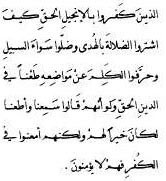 الذين كفروا بالإنجيل الحق كيف
اشتروا الضلالة بالهدى وضلوا سواء السبيل
وحرفوا الكلم عن مواضعه طعنا في
الدين الحق ولو أنهم قالوا سمعنا وأطعنا
لكان خيرا لهم ولكنهم أمعنوا في
الكفر فهم لا يؤمنون .